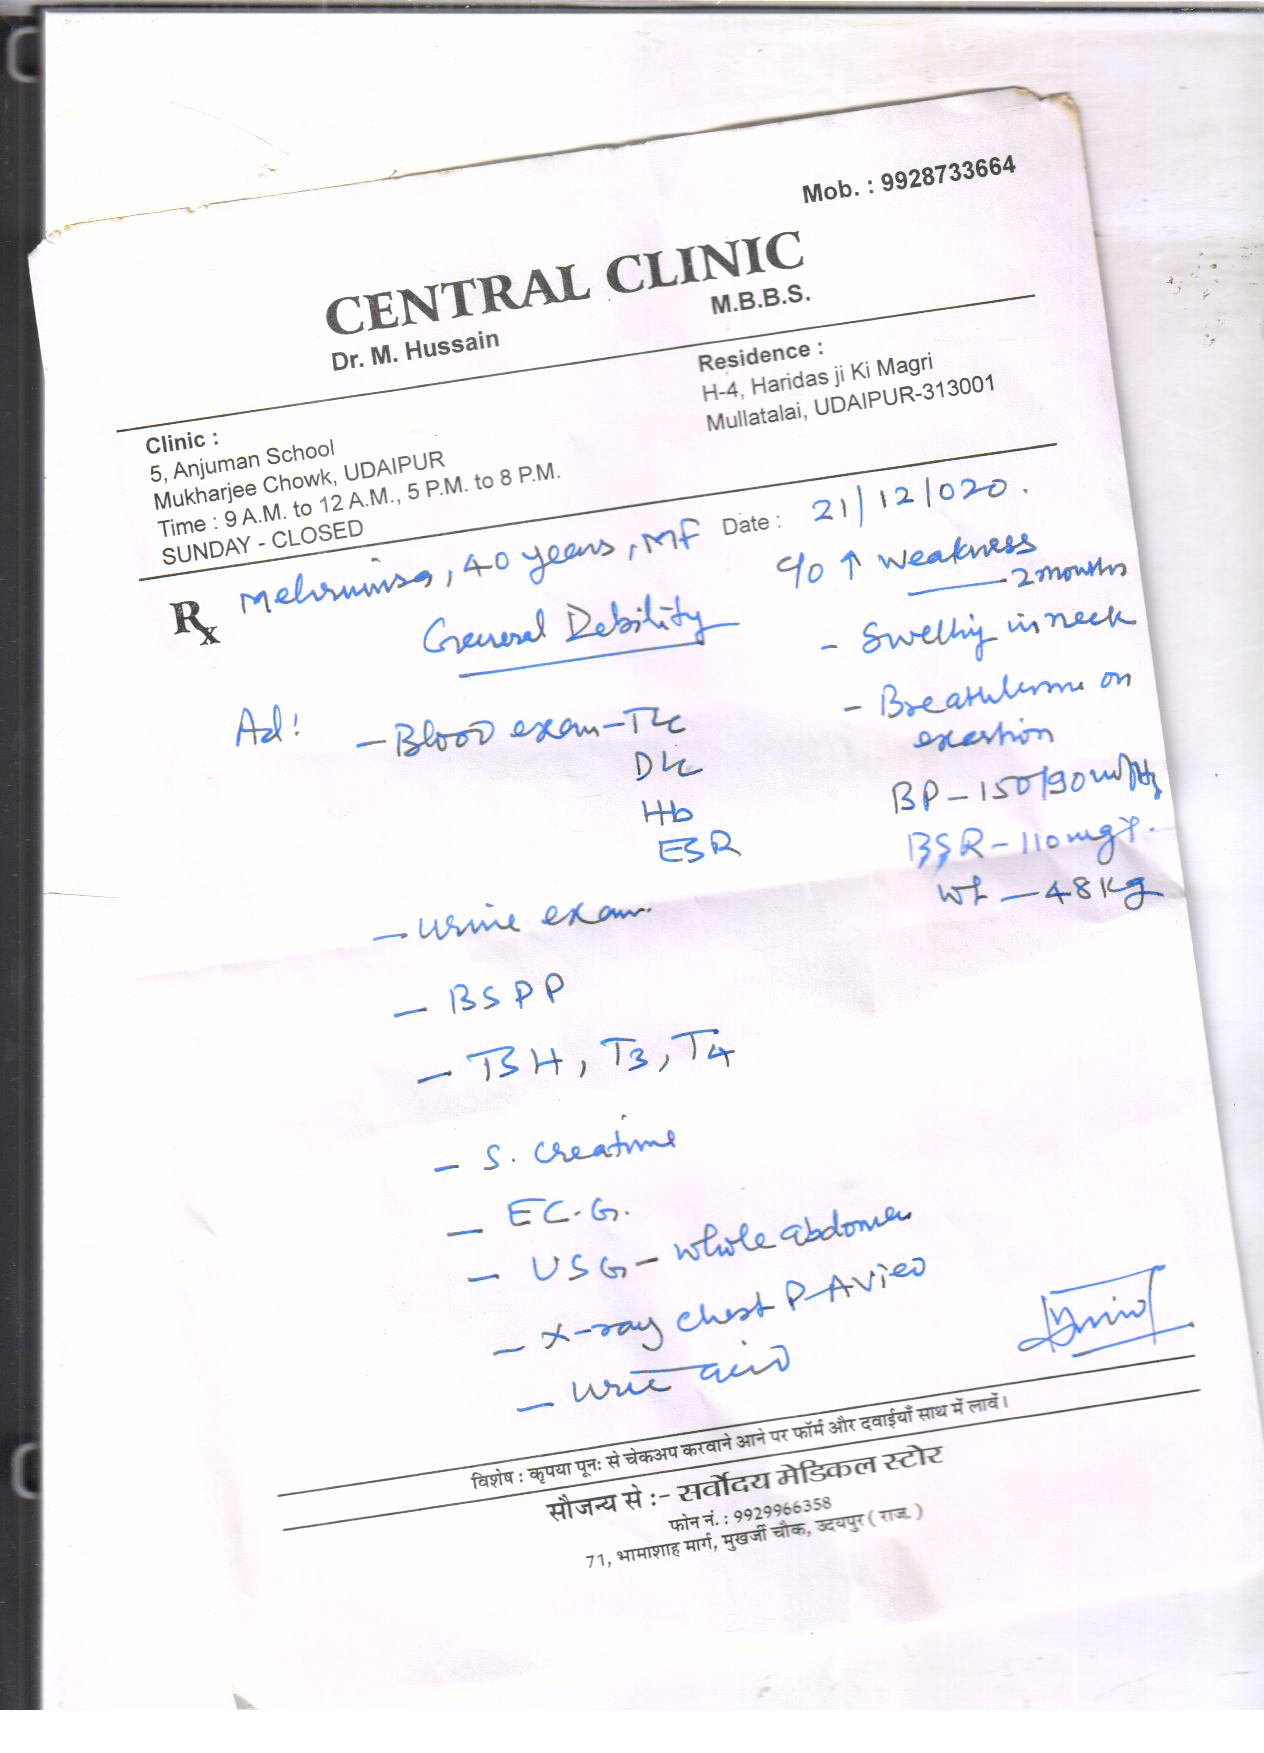 Mob. : 9928733664
CENTRAL CLINIC
Dr. M. Hussain
M.B.B.S.
Clinic :
5, Anjuman School
Mukharjee Chowk, UDAIPUR
Time : 9 A.M. to 12 A.M., 5 P.M. to 8 P.M.
SUNDAY - CLOSED
Residence :
H-4, Haridas ji Ki Magri
Mullatalai, UDAIPUR-313001
Date : 21/12/020.
Rx Mehrunisa, 40 years, MF
General Debility
C/o ↑ Weakness
— 2 months
- Swelling in neck
- Breathlessness on
exertion
BP - 150/90 mm/Hg
BSR - 110 mg%.
Wt — 48 Kg
Ad:
- Blood exam - TLC
DLC
Hb
ESR
- Urine exam.
- BSPP
- TSH, T3, T4
- S. Creatinine
- E.C.G.
- USG - whole abdomen
- X-ray chest P-A View
- Uric acid
विशेष : कृपया पूनः से चेकअप करवाने आने पर फॉर्म और दवाईयाँ साथ में लावें।
सौजन्य से :- सर्वोदय मेडिकल स्टोर
फोन नं. : 9929966358
71, भामाशाह मार्ग, मुखर्जी चौक, उदयपुर ( राज. )